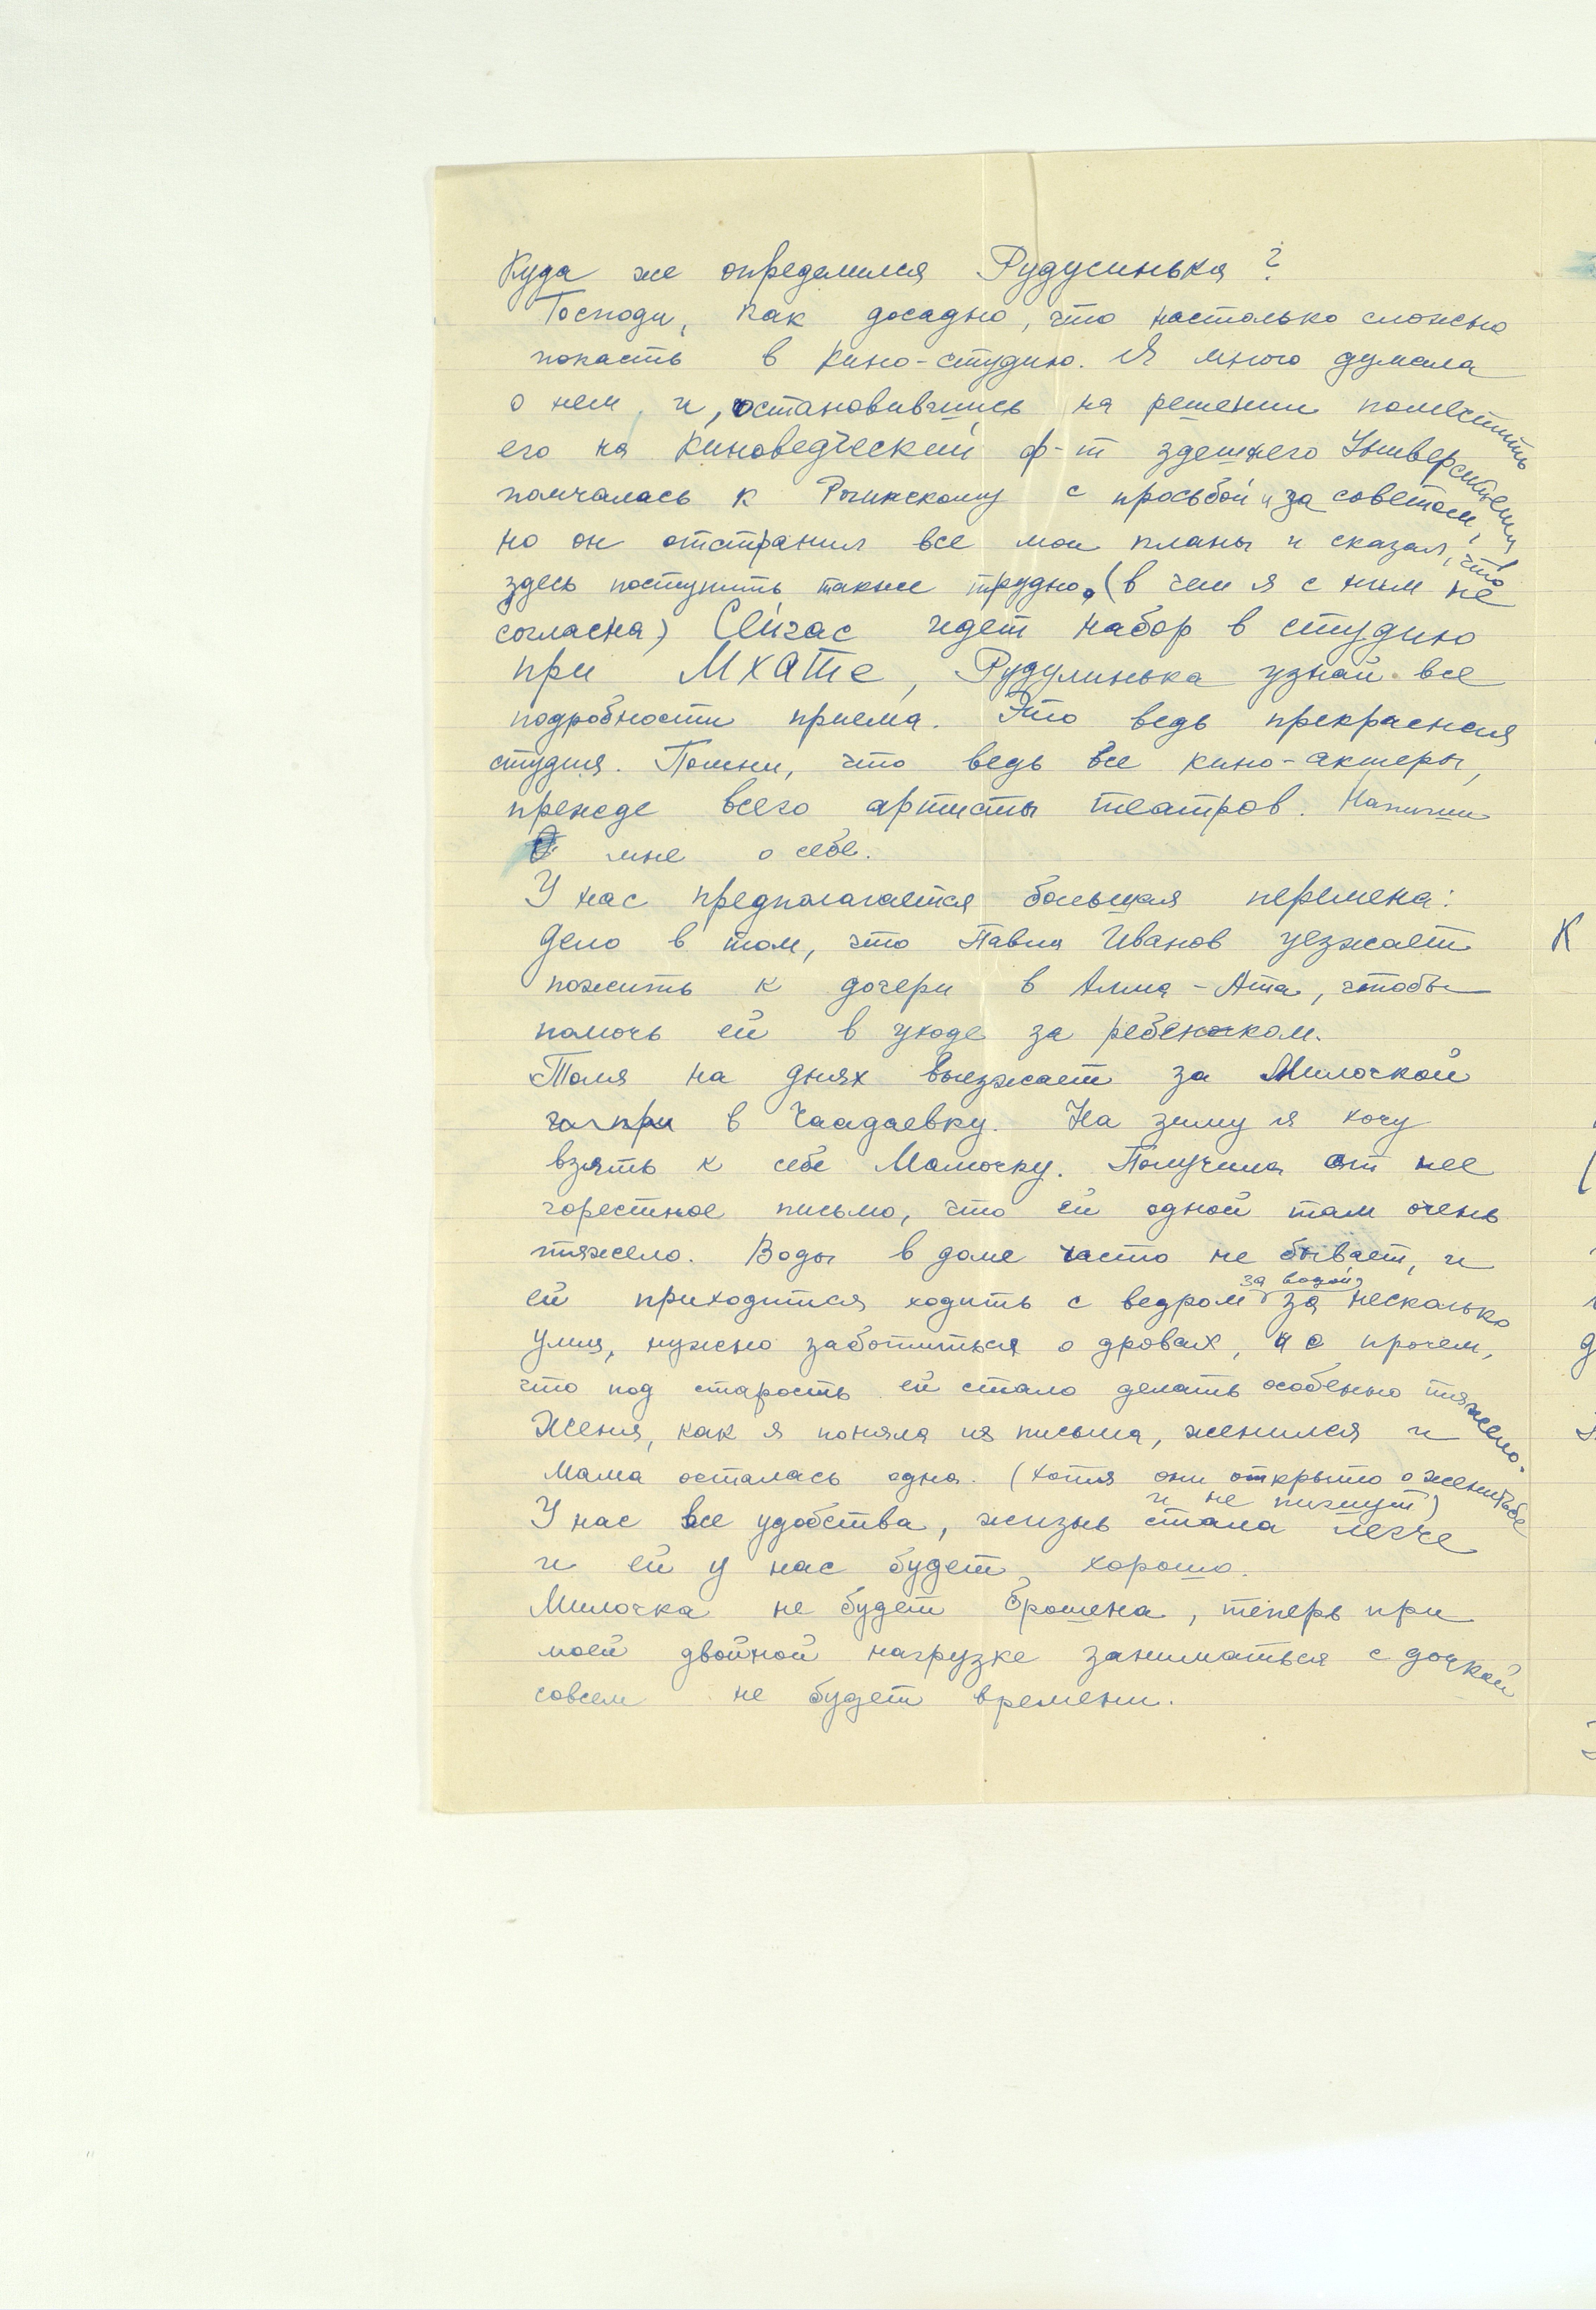 Куда же определился Рудусинька?
Господи, как досадно, что настолько сложно
попасть в кино-студию. Я много думала
о нем, и, остановившись на решении поместить
его на киноведческий ф-т здешнего Университета,
помчалась к с просьбой и за советом,
но он отстранил все мои планы и сказал, что
здесь поступить также трудно. (в чем я с ним не
согласна) Сейчас идет набор в студию
при МХАТе, Рудулинька узнай все
подробности приема. Это ведь прекрасная
студия. Помни, что ведь все кино-актеры,
прежде всего артисты театров. Напиши
мне о себе.
У нас предполагается большая перемена:
Дело в том, что Павла Иванов уезжает
пожить к дочери в Алма-Ата, чтобы
помочь ей в уходе за ребенком.
Толя на днях выезжает за Милочкой
в Чаадаевку. На зиму я хочу
взять к себе Мамочку. Получила от нее
горестное письмо, что ей одной там очень
тяжело. Воды в доме часто не бывает, и
ей приходится ходить с ведром за водой за несколько
улиц, нужно заботиться о дровах, и о прочем,
что под старость ей стало делать особенно тяжело.
Женя, как я поняла из письма, женился и
мама осталась одна. (хотя они открыто о женитьбе
и не пишут)
У нас все удобства, жизнь стала легче
и ей у нас будет хорошо.
Милочка не будет брошена, теперь при
моей двойной нагрузке заниматься с дочкой
совсем не будет времени.
К